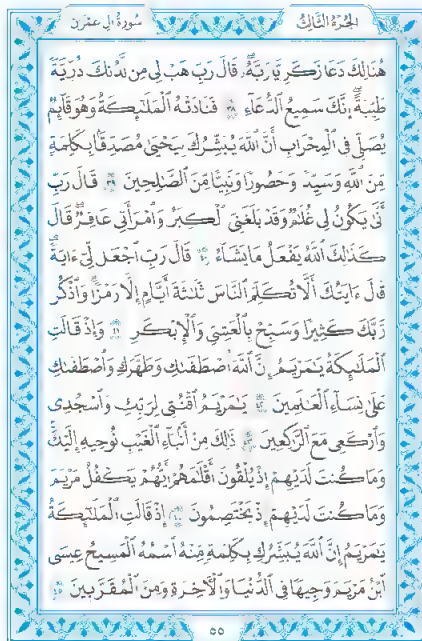 سورة آل عمرن الجزء الثالث
هُنَالِكَ دَعَا زَكَرِيَّا رَبَّهُۥ قَالَ رَبِّ هَبْ لِى مِن لَّدُنكَ ذُرِّيَّةً
طَيِّبَةً إِنَّكَ سَمِيعُ ٱلدُّعَآءِ ٣٨ فَنَادَتْهُ ٱلْمَلَٰٓئِكَةُ وَهُوَ قَآئِمٌ
يُصَلِّى فِى ٱلْمِحْرَابِ أَنَّ ٱللَّهَ يُبَشِّرُكَ بِيَحْيَىٰ مُصَدِّقًۢا بِكَلِمَةٍ
مِّنَ ٱللَّهِ وَسَيِّدًا وَحَصُورًا وَنَبِيًّا مِّنَ ٱلصَّٰلِحِينَ ٣٩ قَالَ رَبِّ
أَنَّىٰ يَكُونُ لِى غُلَٰمٌ وَقَدْ بَلَغَنِىَ ٱلْكِبَرُ وَٱمْرَأَتِى عَاقِرٌ قَالَ
كَذَٰلِكَ ٱللَّهُ يَفْعَلُ مَا يَشَآءُ ٤٠ قَالَ رَبِّ ٱجْعَل لِّىٓ ءَايَةً
قَالَ ءَايَتُكَ أَلَّا تُكَلِّمَ ٱلنَّاسَ ثَلَٰثَةَ أَيَّامٍ إِلَّا رَمْزًا وَٱذْكُر
رَّبَّكَ كَثِيرًا وَسَبِّحْ بِٱلْعَشِىِّ وَٱلْإِبْكَٰرِ ٤١ وَإِذْ قَالَتِ
ٱلْمَلَٰٓئِكَةُ يَٰمَرْيَمُ إِنَّ ٱللَّهَ ٱصْطَفَىٰكِ وَطَهَّرَكِ وَٱصْطَفَىٰكِ
عَلَىٰ نِسَآءِ ٱلْعَٰلَمِينَ ٤٢ يَٰمَرْيَمُ ٱقْنُتِى لِرَبِّكِ وَٱسْجُدِى
وَٱرْكَعِى مَعَ ٱلرَّٰكِعِينَ ٤٣ ذَٰلِكَ مِنْ أَنۢبَآءِ ٱلْغَيْبِ نُوحِيهِ إِلَيْكَ
وَمَا كُنتَ لَدَيْهِمْ إِذْ يُلْقُونَ أَقْلَٰمَهُمْ أَيُّهُمْ يَكْفُلُ مَرْيَمَ
وَمَا كُنتَ لَدَيْهِمْ إِذْ يَخْتَصِمُونَ ٤٤ إِذْ قَالَتِ ٱلْمَلَٰٓئِكَةُ
يَٰمَرْيَمُ إِنَّ ٱللَّهَ يُبَشِّرُكِ بِكَلِمَةٍ مِّنْهُ ٱسْمُهُ ٱلْمَسِيحُ عِيسَى
ٱبْنُ مَرْيَمَ وَجِيهًا فِى ٱلدُّنْيَا وَٱلْءَاخِرَةِ وَمِنَ ٱلْمُقَرَّبِينَ ٤٥
٥٥